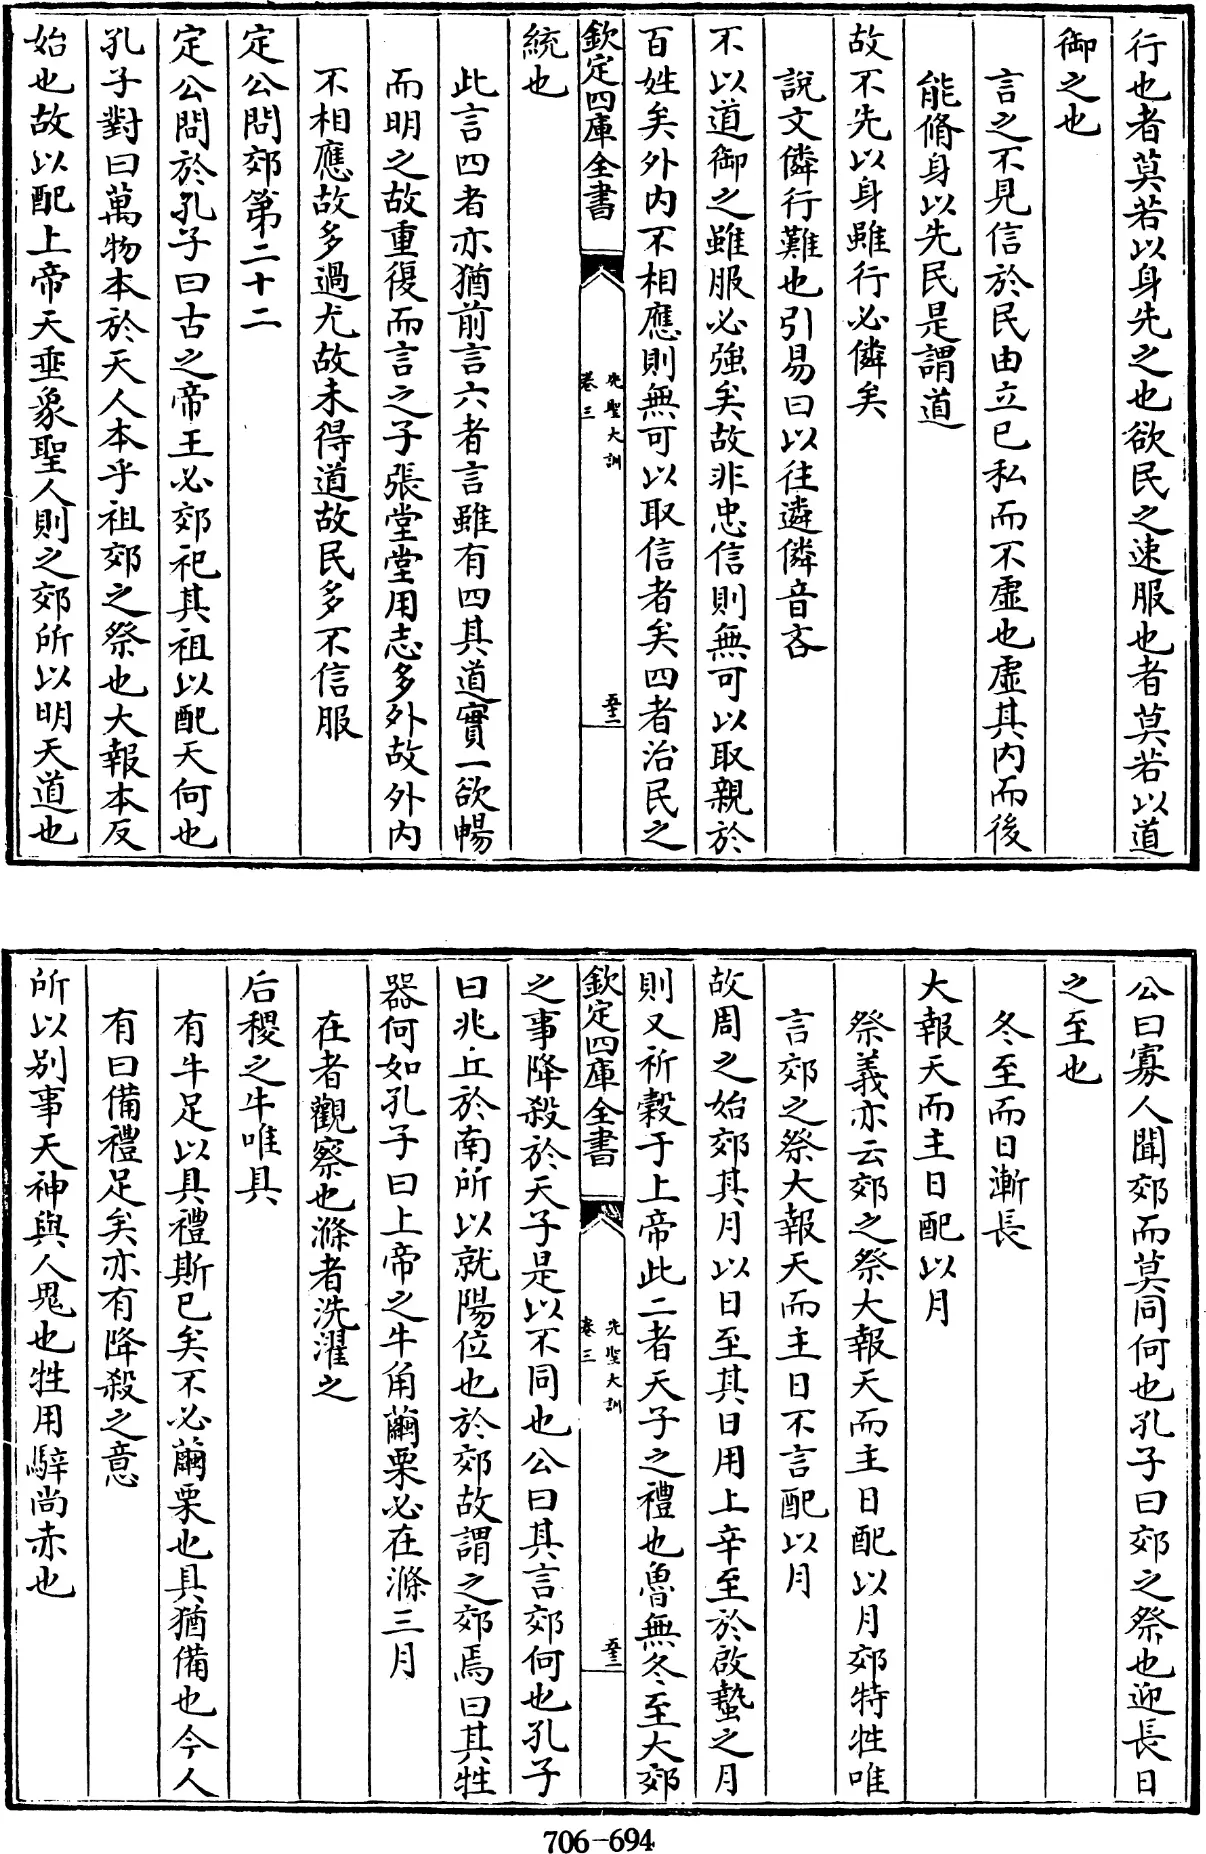 行也者莫若以身先之也欲民之速服也者莫若以道
御之也
言之不見信於民由立已私而不虛也虛其内而後
能脩身以先民是謂道
故不先以身雖行必僯矣
說文僯行難也引易曰以往遴僯音吝
不以道御之雖服必強矣故非忠信則無可以取親於
百姓矣外内不相應則無可以取信者矣四者治民之
欽定四庫全書
先聖大訓
卷三
統也
此言四者亦猶前言六者言雖有四其道實一欲暢
而明之故重復而言之子張堂堂用志多外故外内
不相應故多過尤故未得道故民多不信服
定公問郊第二十二
定公問於孔子曰古之帝王必郊祀其祖以配天何也
孔子對曰萬物本於天人本乎祖郊之祭也大報本反
始也故以配上帝天垂象聖人則之郊所以明天道也
公曰寡人聞郊而莫同何也孔子曰郊之祭也迎長日
之至也
冬至而日漸長
大報天而主日配以月
祭義亦云郊之祭大報天而主日配以月郊特牲唯
言郊之祭大報天而主日不言配以月
故周之始郊其月以日至其日用上辛至於啟蟄之月
則又祈穀于上帝此二者天子之禮也魯無冬至大郊
欽定四庫全書
先聖大訓
卷三
之事降殺於天子是以不同也公曰其言郊何也孔子
曰兆丘於南所以就陽位也於郊故謂之郊焉曰其牲
器何如孔子曰上帝之牛角繭栗必在滌三月
在者觀察也滌者洗濯之
后稷之牛唯具
有牛足以具禮斯已矣不必繭栗也具猶備也今人
有曰備禮足矣亦有降殺之意
所以别事天神與人鬼也牲用騂尚赤也
706-694